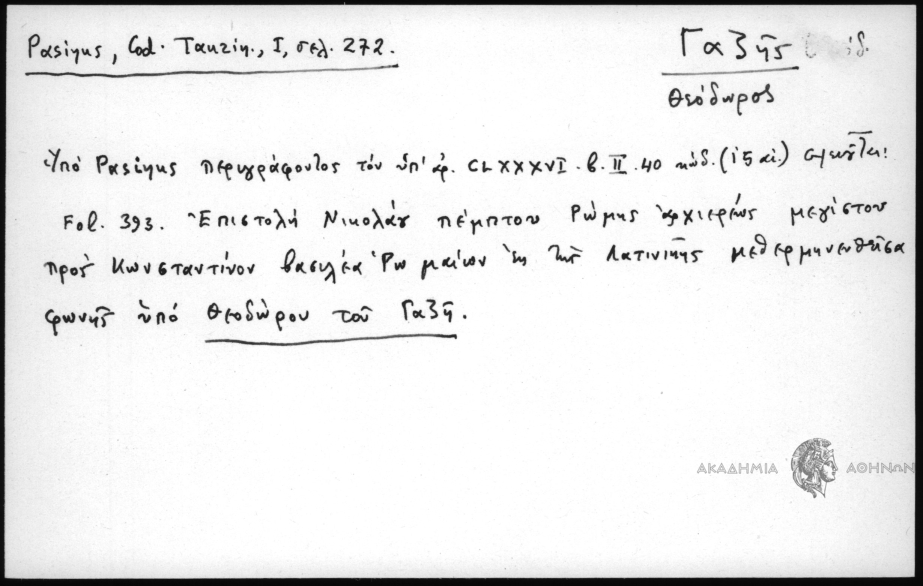 Pasinus, Cod. Taurin., I, σελ. 272.
Γαζῆς
Θεόδωρος
Ὑπὸ Pasinus περιγράφοντος τὸν ὑπ' ἀρ. CLXXXVI. b. II. 40 κώδ. (15 αἰ.)
Fol. 393. Ἐπιστολὴ Νικολάου πέμπτου Ρώμης ἀρχιερέως μεγίστου
πρὸς Κωνσταντῖνον βασιλέα Ῥωμαίων ἐκ τῆς Λατινικῆς μεθερμηνευθεῖσα
φωνῆς ὑπὸ Θεοδώρου τοῦ Γαζῆ.
ΑΚΑΔΗΜΙΑ ΑΘΗΝΩΝ